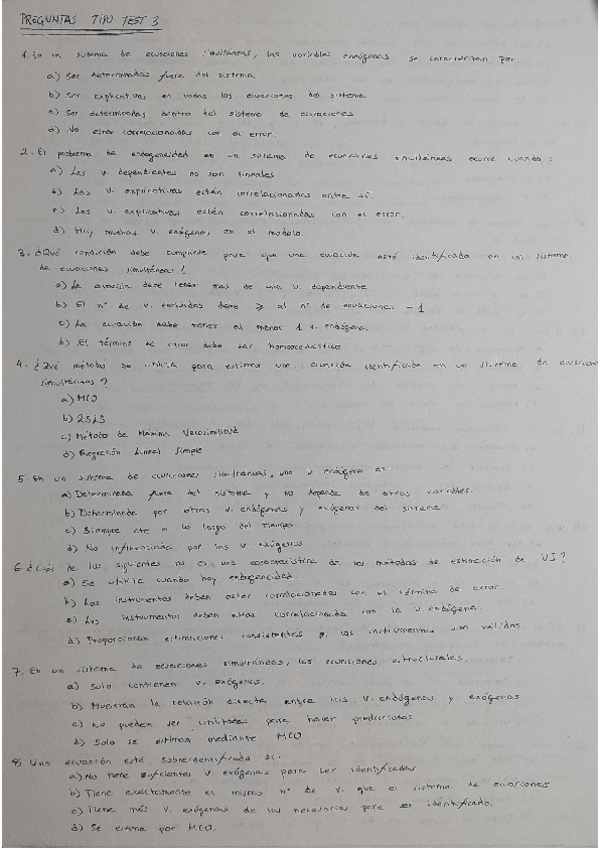 PREGUNTAS TIPO TEST 3
1. En un sistema de ecuaciones simultáneas, las variables endógenas se caracterizan por
a) Ser determinadas fuera del sistema
b) Ser explicativas en todas las ecuaciones del sistema
c) Ser determinadas dentro del sistema de ecuaciones
d) No estar correlacionadas con el error.
2. El problema de endogeneidad en un sistema de ecuaciones simultáneas ocurre cuando:
a) Las v. dependientes no son lineales
b) Las v. explicativas están correlacionadas entre sí.
c) Las v. explicativas están correlacionadas con el error.
d) Hay muchas v. exógenas en el modelo.
3. ¿Qué condición debe cumplirse para que una ecuación esté identificada en un sistema
de ecuaciones simultáneas?
a) La ecuación debe tener más de una v. dependiente
b) El nº de v. excluidas debe ≥ al nº de ecuaciones -1
c) La ecuación debe tener al menos 1 v. endógena
d) El término de error debe ser homocedástico
4. ¿Qué método se utiliza para estimar una ecuación identificada en un sistema de ecuaciones
simultáneas?
a) MCO
b) 2SLS
c) Método de Máxima Verosimilitud
d) Regresión Lineal Simple
5. En un sistema de ecuaciones simultáneas, una v. exógena es:
a) Determinada fuera del sistema y no depende de otras variables.
b) Determinada por otras v. endógenas y exógenas del sistema
c) Siempre cte a lo largo del tiempo
d) No influenciada por las v. exógenas
6. ¿Cuál de las siguientes no es una característica de los métodos de estimación de VI?
a) Se utiliza cuando hay endogeneidad
b) Los instrumentos deben estar correlacionados con el término de error.
c) Los instrumentos deben estar correlacionada con la v. endógena
d) Proporcionan estimaciones consistentes si los instrumentos son válidos.
7. En un sistema de ecuaciones simultáneas, las ecuaciones estructurales.
a) Solo contienen v. exógenas.
b) Muestran la relación directa entre las v. endógenas y exógenas
c) No pueden ser utilizadas para hacer predicciones
d) Solo se estiman mediante MCO
8) Una ecuación está sobreidentificada si:
a) No tiene suficientes v. exógenas para ser identificadas
b) Tiene exactamente el mismo nº de v. que el sistema de ecuaciones
c) Tiene más v. exógenas de las necesarias para ser identificado.
d) Se estima por MCO.